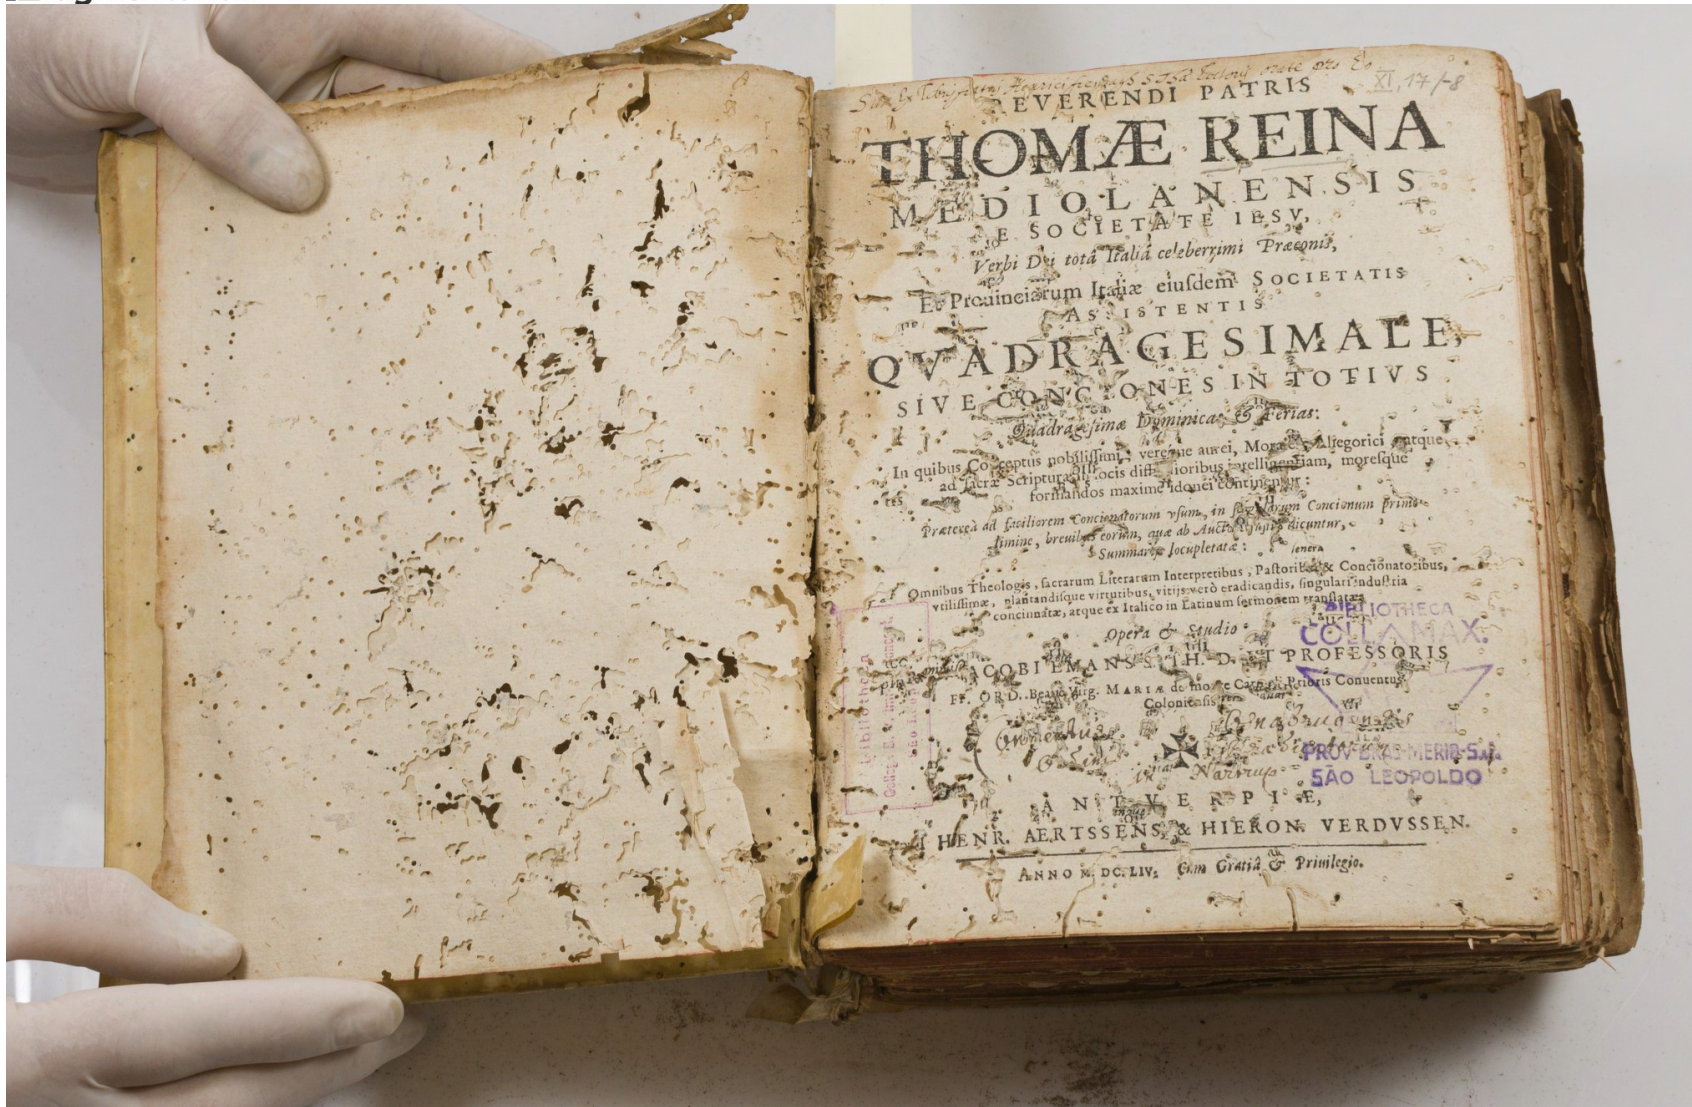 XI, 17/-8
REVERENDI PATRIS
THOMÆ REINA
MEDIOLANENSIS
E SOCIETATE IESV,
Verbi Dei totâ Italiâ celeberrimi Præconis,
Et Prouinciarum Italiæ eiuſdem SOCIETATIS
ASSISTENTIS
QVADRAGESIMALE,
SIVE CONCIONES IN TOTIVS
Quadrageſimæ Dominicas & Ferias:
In quibus Conceptus nobiliſſimi, vereque aurei, Morales, Allegorici, atque
ad ſacræ Scripturæ locis difficilioribus intelligentiam, moreſque
formandos maxime idonei continentur:
Prætereà ad faciliorem Concionatorum vſum, in ſingularum Concionum primo
limine, breuibus eorum, quæ ab Auctore fusiùs dicuntur,
Summariis locupletatæ:
Omnibus Theologis, ſacrarum Literarum Interpretibus, Paſtoribus & Concionatoribus,
vtiliſſimæ, plantandiſque virtutibus, vitijs verò eradicandis, ſingulari induſtria
concinnatæ, atque ex Italico in Latinum ſermonem tranſlatæ
Opera & Studio
IACOBI EMANS S. TH. D. ET PROFESSORIS
FF. ORD. Beatæ Virg. MARIÆ de monte Carmeli Prioris Conuentus
Colonienſis
ANTVERPIÆ,
HENR. AERTSSENS, & HIERON. VERDVSSEN.
ANNO M. DC. LIV. Cum Gratiâ & Priuilegio.
Bibliothek
São Leopoldo
BIBLIOTHECA
COLL. MAX.
PROV. BRAS. MERID. S.J.
SÃO LEOPOLDO